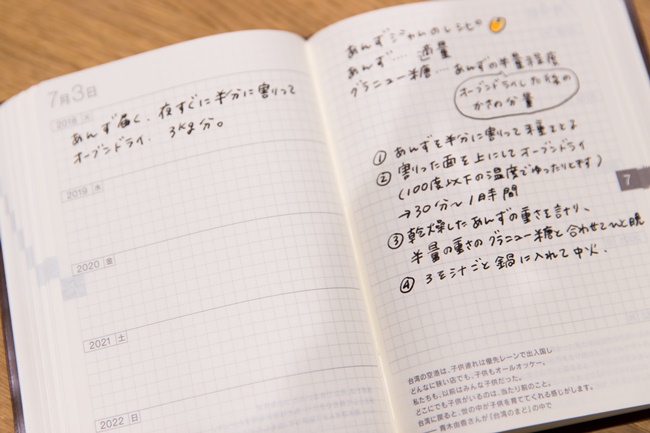 7月3日
2018 火
あんず届く、夜すぐに半分に割って
オーブンドライ、3kg分。
2019 水
2020 金
2021 土
2022 日
あんずジャムのレシピ
あんず…… 適量
グラニュー糖… あんずの半量程度
オーブンドライした後の
かさの分量
① あんずを半分に割って種をとる
② 割った面を上にしてオーブンドライ
(100度以下の温度でゆったりと干す)
→30分〜1時間
③ 乾燥したあんずの重さを計り、
半量の重さのグラニュー糖と合わせてひと晩
④ 3を汁ごと鍋に入れて中火.
7
台湾の空港は、子供連れは優先レーンで出入国し
どんなに狭い店でも、子供もオールオッケー。
私たちも、以前はみんな子供だった。
どこにでも子供がいるのは、当たり前のこと。
台湾に戻ると、世の中が子供を育ててくれる感じがします。
── 青木由香さんが『台湾のまど』の中で